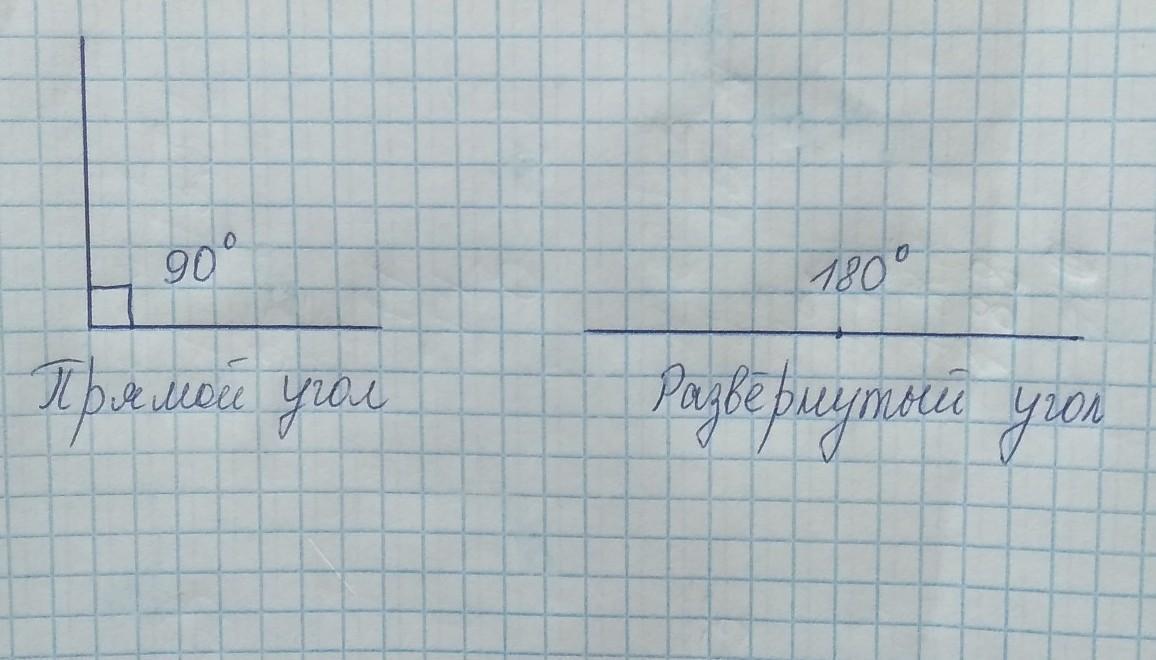 90°
180°
Прямой угол
Развёрнутый угол